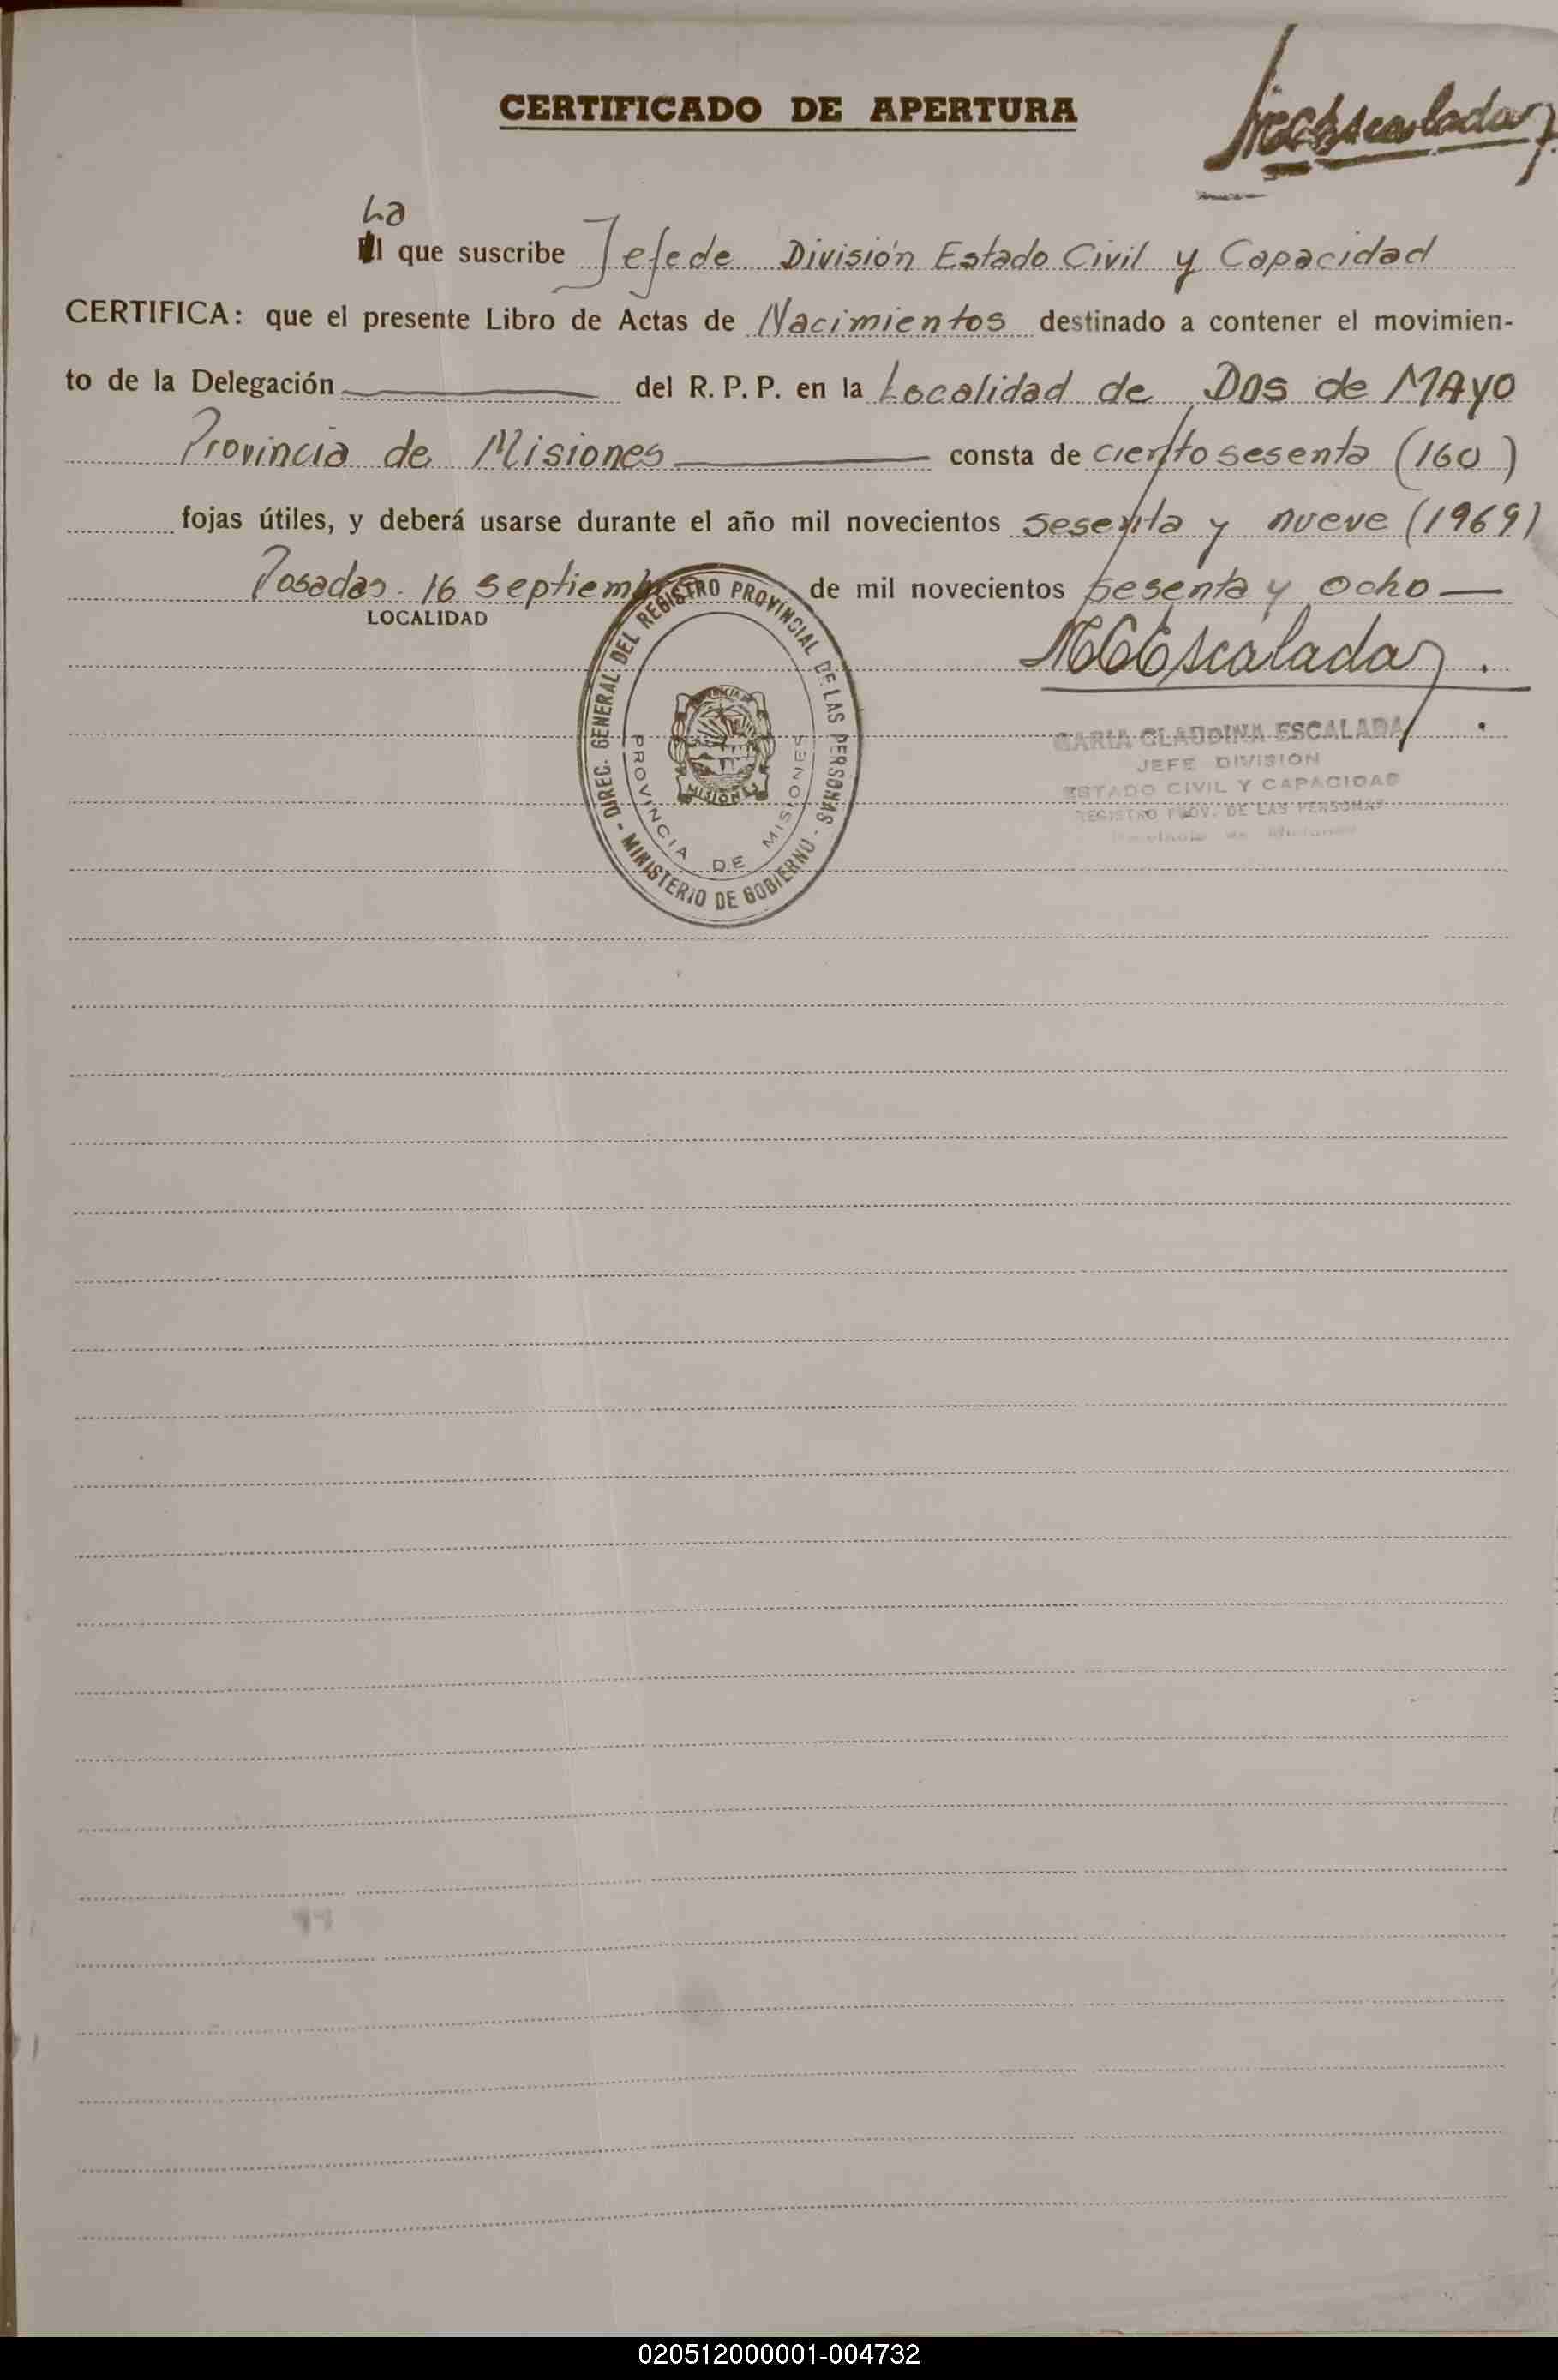 CERTIFICADO DE APERTURA
La
El que suscribe Jefe de División Estado Civil y Capacidad
CERTIFICA: que el presente Libro de Actas de Nacimientos destinado a contener el movimien-
to de la Delegación del R. P. P. en la Localidad de Dos de MAYO
Provincia de Misiones consta de ciento sesenta (160)
fojas útiles, y deberá usarse durante el año mil novecientos sesenta y nueve (1969)
Posadas. 16 septiembre de mil novecientos sesenta y ocho
LOCALIDAD
MCEscalada
DIREC. GENERAL DEL REGISTRO PROVINCIAL DE LAS PERSONAS - MINISTERIO DE GOBIERNO -
PROVINCIA DE MISIONES
MISIONES
MARIA CLAUDINA ESCALADA
JEFE DIVISION
ESTADO CIVIL Y CAPACIDAD
REGISTRO PROV. DE LAS PERSONAS
Provincia de Misiones
020512000001-004732